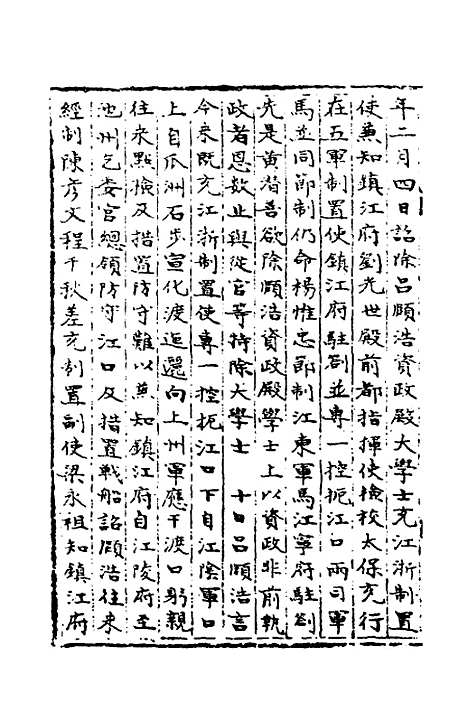 年二月四日詔除呂頤浩資政殿大學士充江浙制置
使兼知鎮江府劉光世殿前都指揮使檢校太保充行
在五軍制置使鎮江府駐劄並專一控扼江口兩司軍
馬並同節制仍命楊惟忠節制江東軍馬江寧府駐劄
先是黃潛善欲除頤浩資政殿學士上以資政非前執
政者恩數止與從官等特除大學士 十日呂頤浩言
今來既充江浙制置使專一控扼江口下自江陰軍口
上自瓜洲石步宣化渡迤邐向上州軍應干渡口躬親
往來點檢及措置防守難以兼知鎮江府自江陵府至
池州乞委官總領防守江口及措置戰船詔頤浩往來
經制陳彥文程千秋差充制置副使梁永祖知鎮江府